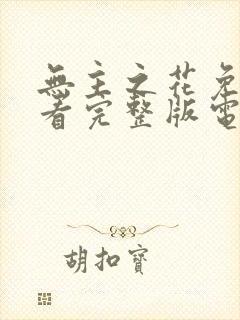 無主之花免
看完整版電
胡扣寶